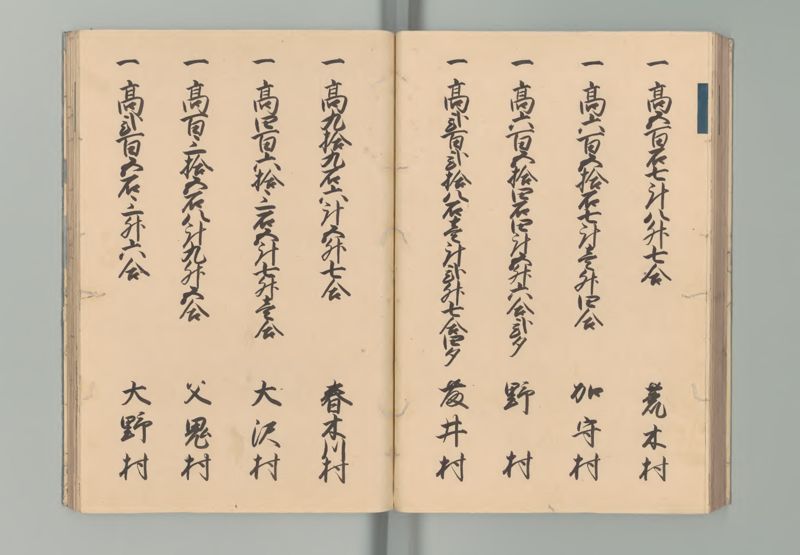 一 高六百石七斗八升七合 荒木村
一 高六百五拾石七斗壱升四合 加守村
一 高六百五拾四石四斗五升六合弐夕 野村
一 高弐百弐拾八石壱斗弐升七合四夕 藤井村
一 高九拾九石六斗五升七合 春木川村
一 高四百六拾三石五斗七升壱合 大沢村
一 高百三拾五石八斗九升五合 父鬼村
一 高弐百五石三升六合 大野村